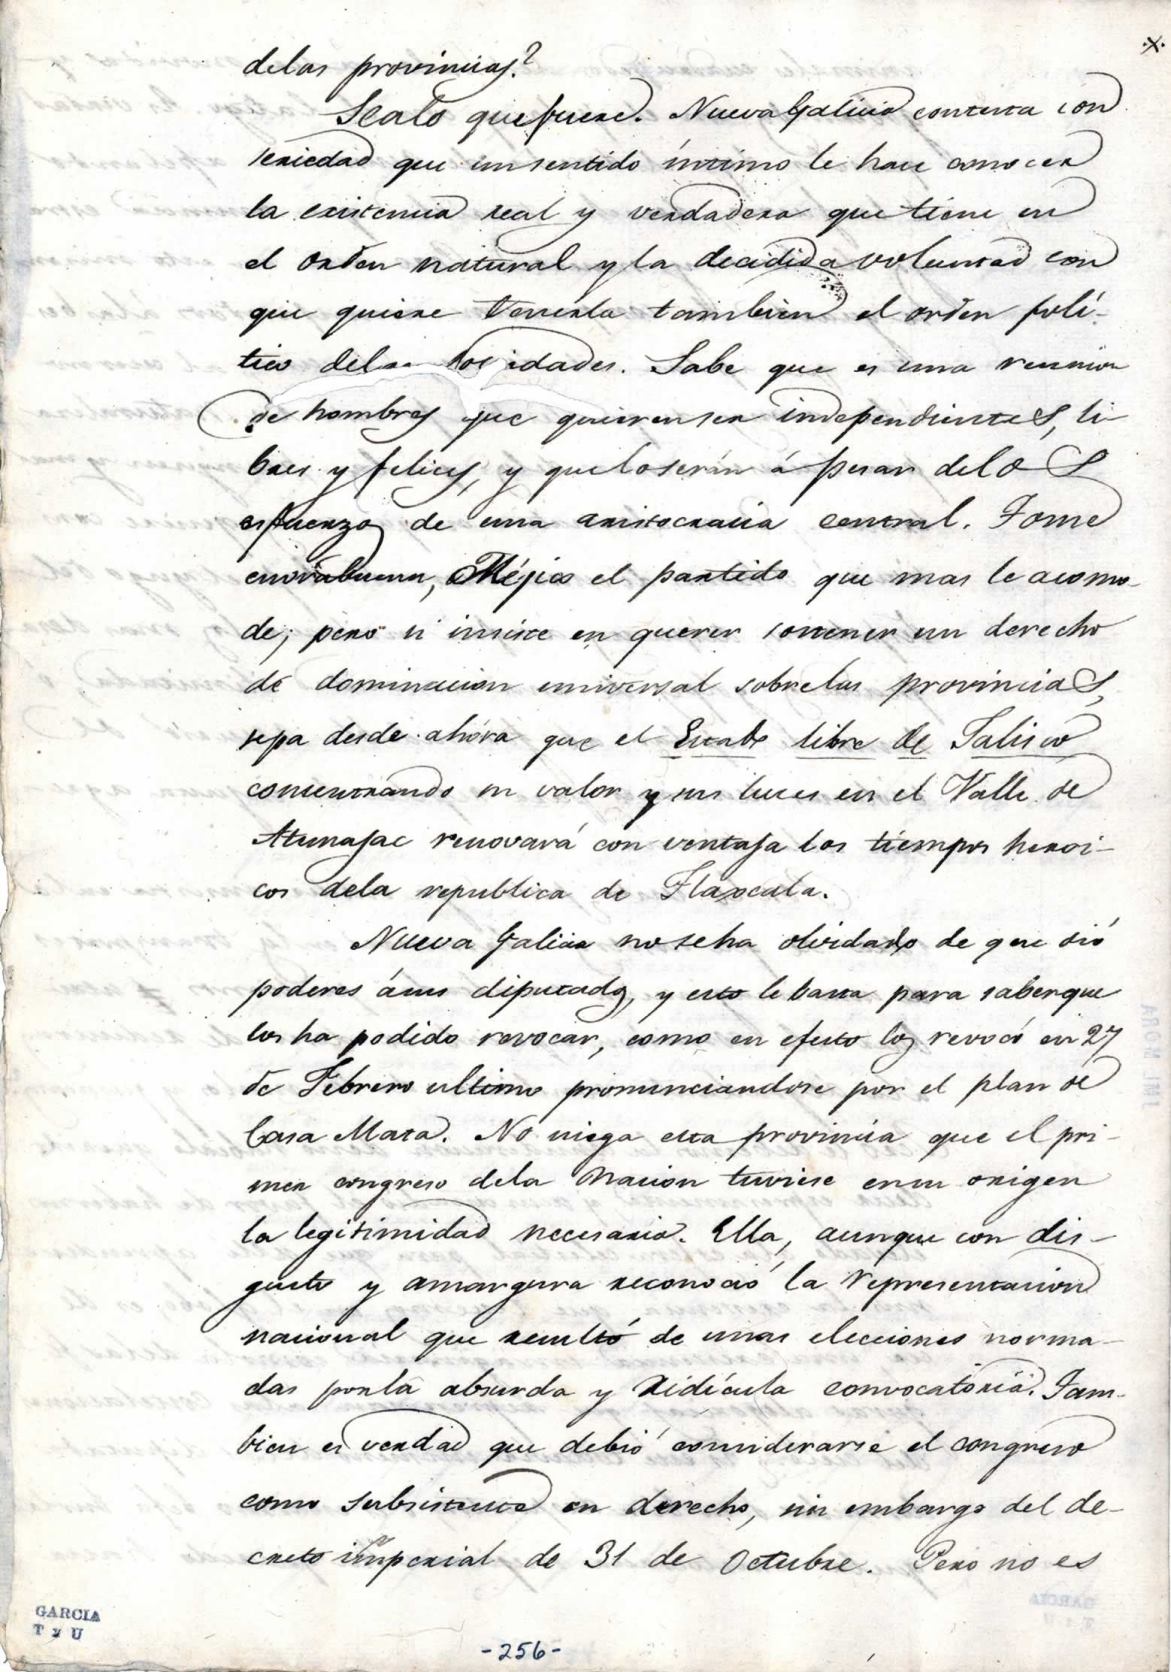 .X.
delas provincias?
Sealo que fuere. Nueva Galicia contesta con
seriedad que un sentido íntimo le hace conocer
la existencia real y verdadera que tiene en
el orden natural y la decidida voluntad con
que quiere tenerla tambien el orden polí-
tico delas sociedades. Sabe que es una reunion
de hombres que quieren ser independientes, li-
bres y felices, y que lo serán á pesar delos
esfuerzos de una aristocracia central. Tome
enorabuena, Méjico el partido que mas le acomo-
de; pero si insiste en querer sostener un derecho
de dominacion universal sobrelas provincias,
sepa desde ahora que el Estado libre de Jalisco
concentrando su valor y sus luces en el Valle de
Atemajac renovará con ventaja los tiempos heroi-
cos dela republica de Tlaxcala.
Nueva Galicia no seha olvidado de que dió
poderes ásus diputados, y esto le basta para saberque
los ha podido revocar, como en efecto los revocó en 27
de Febrero ultimo pronunciandose por el plan de
Casa Mata. No niega esta provincia que el pri-
mer congreso dela Nacion tuviese ensu origen
la legitimidad necesaria. Ella, aunque con dis-
gusto y amargura reconoció la representacion
nacional que resultó de unas elecciones norma-
das porla absurda y ridícula convocatoria. Tam-
bien es verdad que debió considerarse el congreso
como subsistente en derecho, sin embargo del de-
creto imperial de 31 de Octubre. Pero no es
GARCIA
T y U
-256-